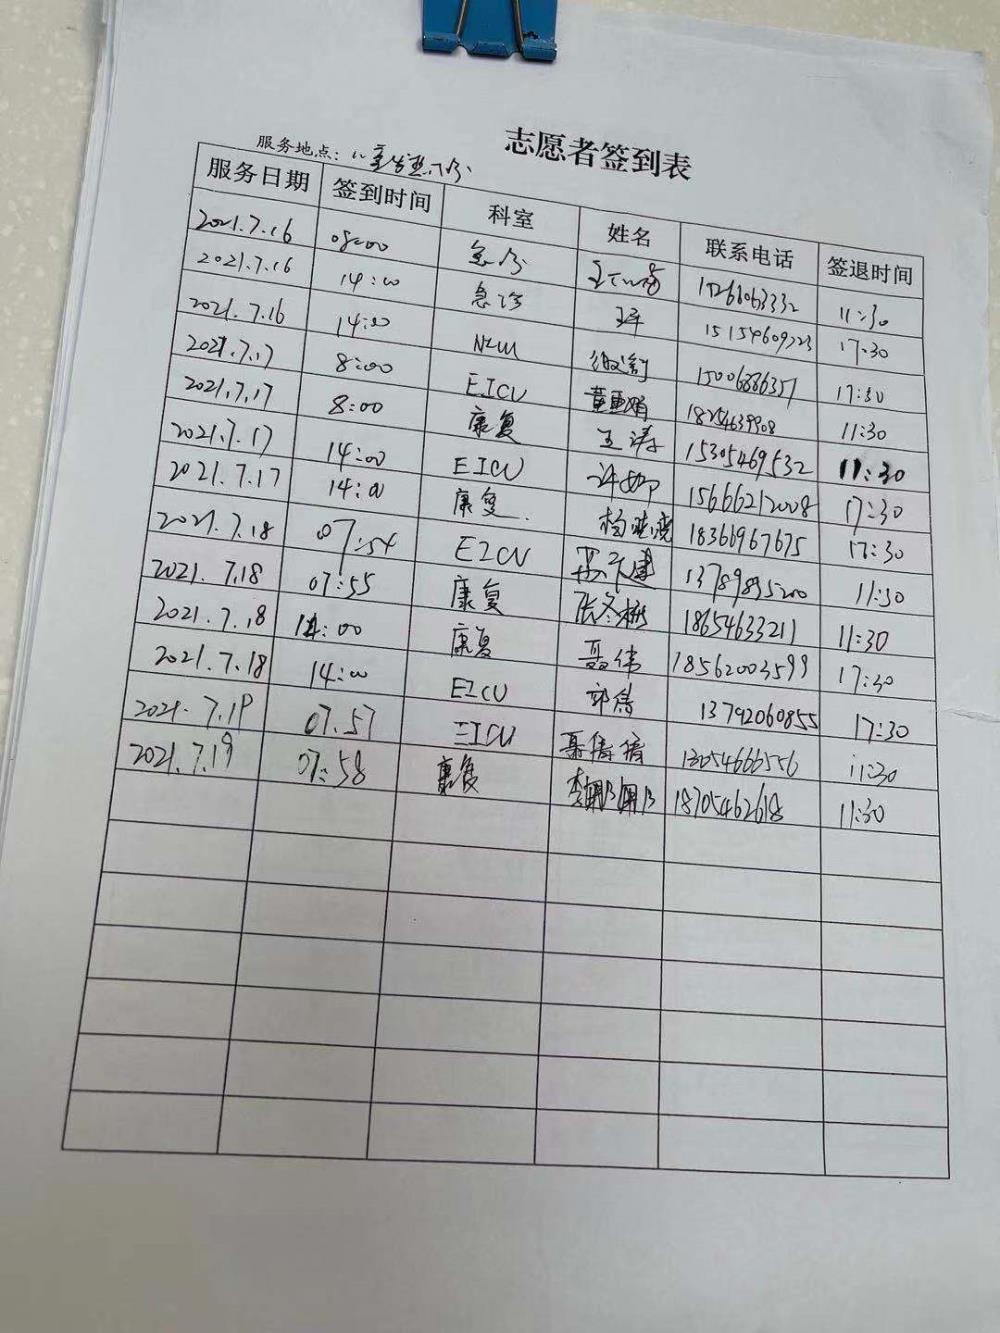 志愿者签到表
服务地点：儿童发热门诊
服务日期 签到时间 科室 姓名 联系电话 签退时间
2021.7.16 08:00 急诊 11:30
2021.7.16 14:00 急诊 15154609223 17:30
2021.7.16 14:00 15006886357 17:30
2021.7.17 8:00 EICU 黄亚娟 18254639908 11:30
2021.7.17 8:00 康复 王涛 15305469532 11:30
2021.7.17 14:00 EICU 许娜 15666212008 17:30
2021.7.17 14:00 康复 18366967675 17:30
2021.7.18 07:54 EICU 13789835200 11:30
2021.7.18 07:55 康复 张冬梅 18654633211 11:30
2021.7.18 14:00 康复 聂伟 18562003599 17:30
2021.7.18 14:00 EICU 郭倩 13792060855 17:30
2021.7.19 07:57 EICU 聂倩倩 13054666556 11:30
2021.7.19 07:58 康复 李朋朋 18705462618 11:30